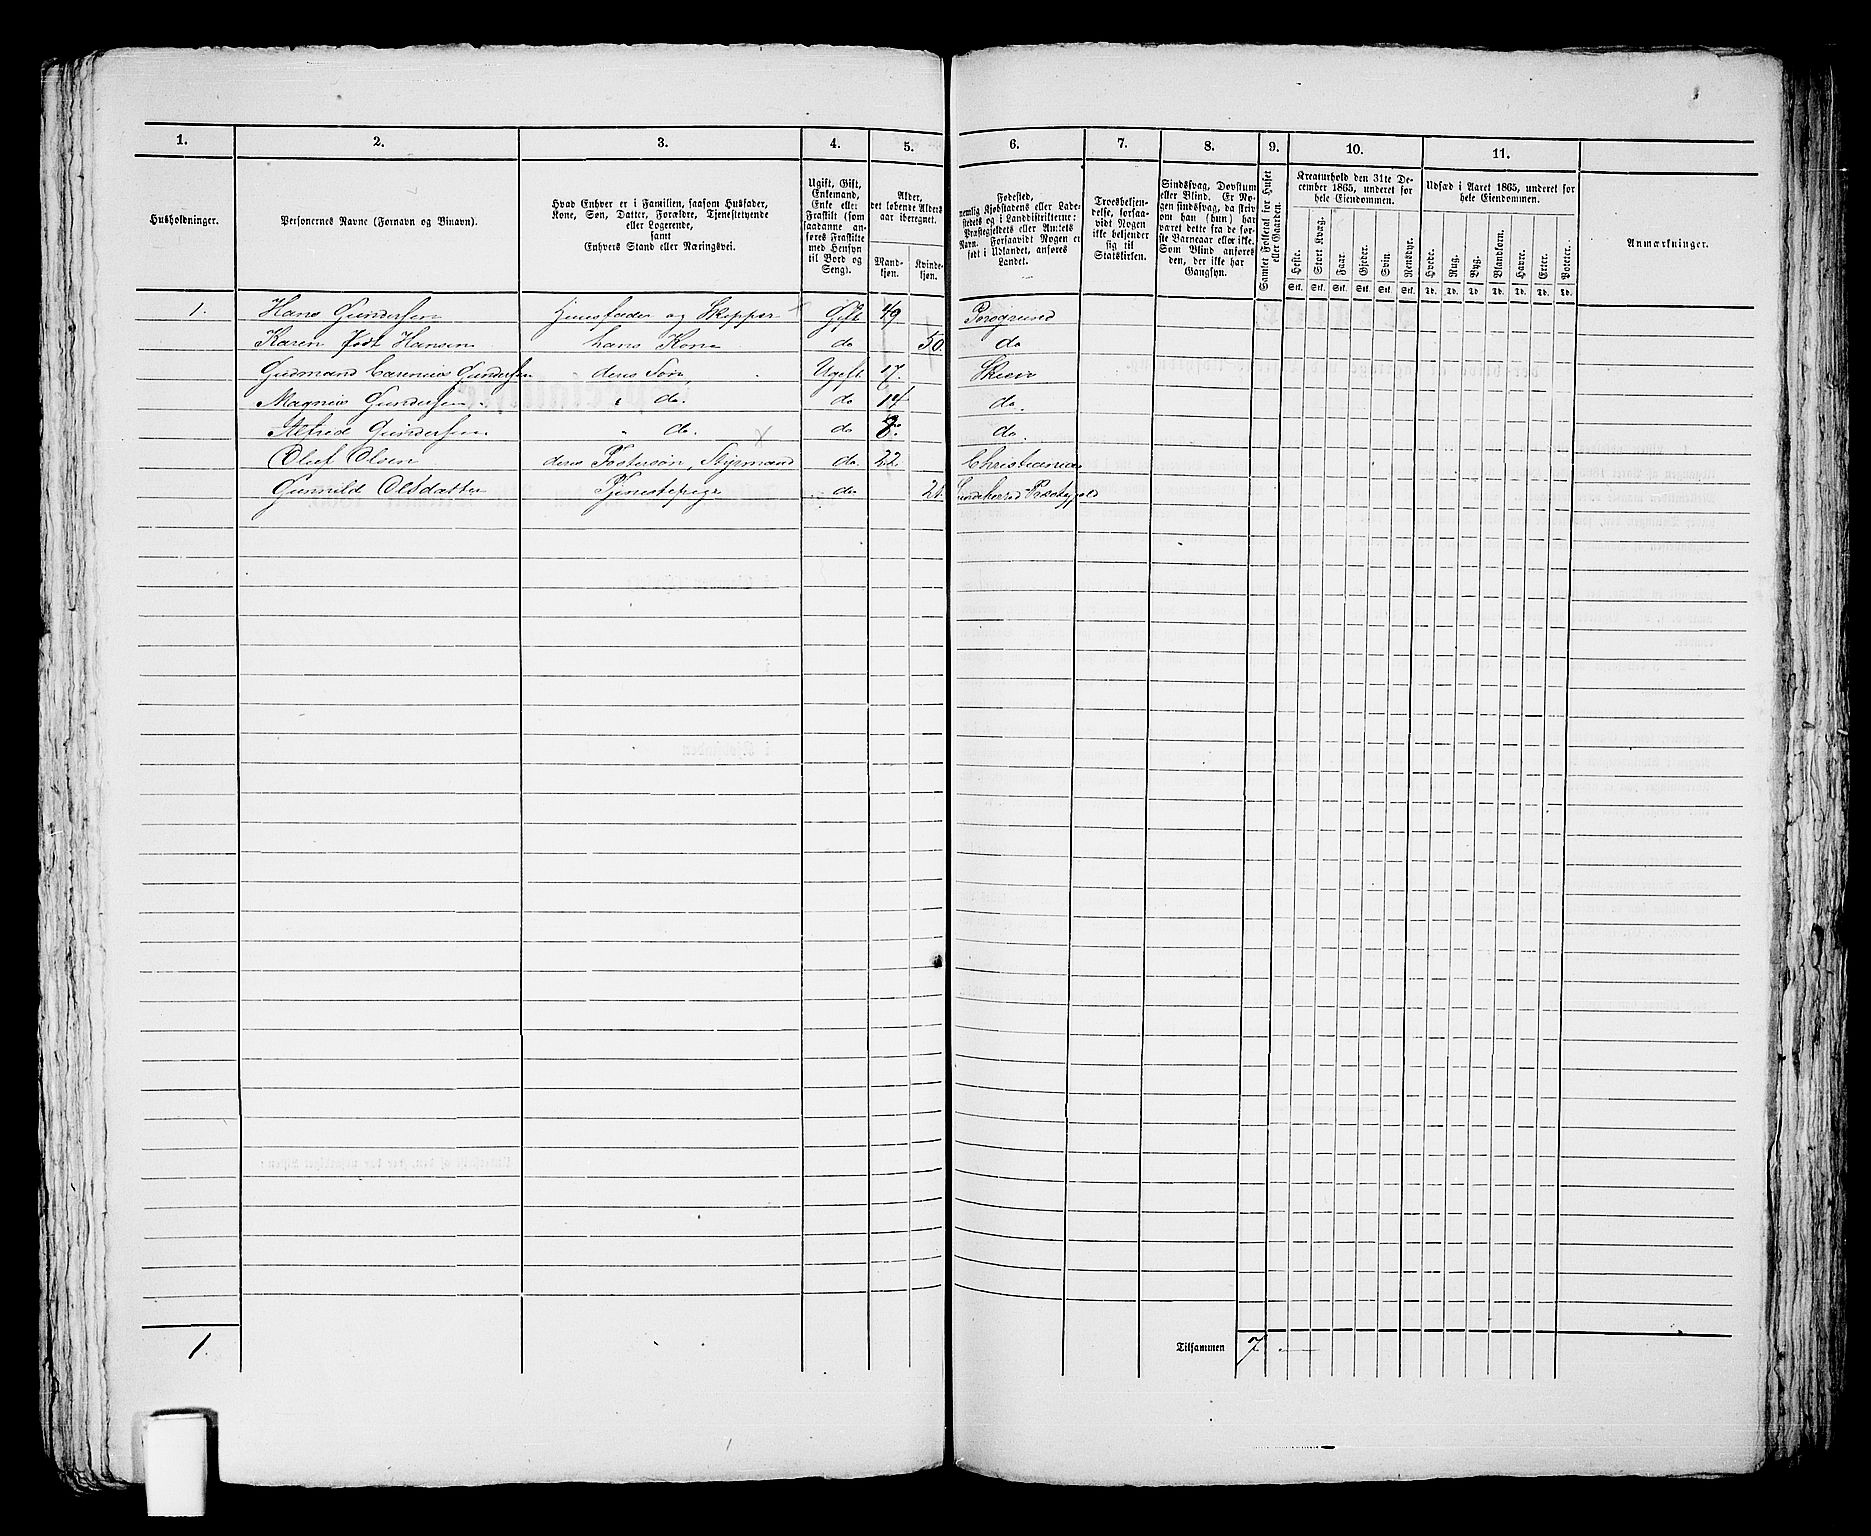 1. 2. 3. 4. 5. 6. 7. 8. 9. 10. 11.
Husholdninger.
Personernes Navne (Fornavn og Binavn).
Hvad Enhver er i Familien, saasom Husfader,
Kone, Søn, Datter, Forældre, Tjenestetyende
eller Logerende,
samt
Enhvers Stand eller Næringsvei.
Ugift, Gift,
Enkemand,
Enke eller
Fraskilt (som
saadanne an-
føres Fraskilte
med Hensyn
til Bord og
Seng).
Alder,
det løbende Alders-
aar iberegnet.
Mand-
kjøn.
Kvinde-
kjøn.
Fødested,
nemlig Kjøbstadens eller Lade-
stedets og i Landdistrikterne:
Præstegjeldets eller Amtets
Navn. Forsaavidt Nogen er
født i Udlandet, anføres
Landet.
Troesbekjen-
delse, forsaa-
vidt Nogen
ikke bekjender
sig til
Statskirken.
Sindssvag, Døvstum
eller Blind. Er No-
gen sindssvag, da skriv
om han (hun) har
været dette fra de før-
ste Barneaar eller ikke.
Som Blind anføres
den, der ikke har
Gangsyn.
Samlet Folketal for Huset
eller Gaarden.
Kreaturhold den 31te De-
cember 1865, underet for
hele Eiendommen.
Heste. Stort Kvæg. Faar. Gjeder. Svin. Rensdyr.
Stk. Stk. Stk. Stk. Stk. Stk.
Udsæd i Aaret 1865, underet for
hele Eiendommen.
Hvede. Rug. Byg. Blandkorn. Havre. Erter. Poteter.
Td. Td. Td. Td. Td. Td. Td.
Anmærkninger.
1. Hans Gundersen Huusfader og Skipper Gift 49 Porsgrund
Karen født Hansen hans Kone do 50. do
Gudmand Gundersen deres Søn, Ugift 17. Skien
Magnus Gundersen " do. do 14 do.
Alfred Gundersen " do. do 8. do.
Oluf Olsen deres Fostersøn, Styrmand do. 22 Christiania
Gunnild Olsdatter Tjenestepige do 21.
1.
Tilsammen 7